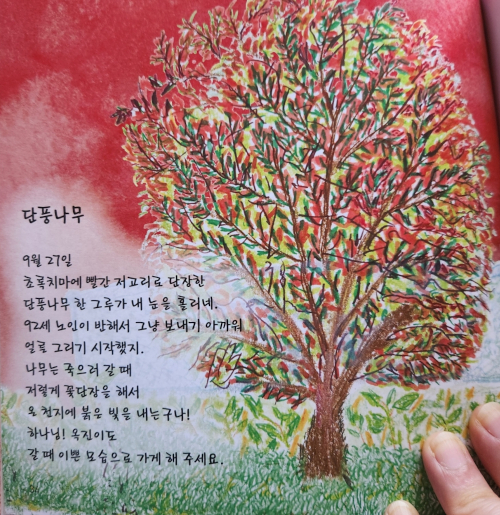 단풍나무
9월 27일
초록치마에 빨간 저고리로 단장한
단풍나무 한 그루가 내 눈을 홀리네.
92세 노인이 반해서 그냥 보내기 아까워
얼른 그리기 시작했지.
나무는 죽으려 갈 때
저렇게 꽃단장을 해서
온 천지에 붉은 빛을 내는구나!
하나님! 옥진이도
갈 때 이쁜 모습으로 가게 해 주세요.